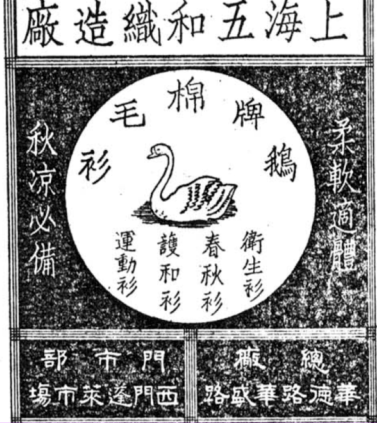 上海五和織造廠
鵝牌棉毛衫
柔軟適體
衛生衫
春秋衫
護和衫
運動衫
秋凉必備
總廠
華德路華盛路
門市部
西門蓬萊市塲